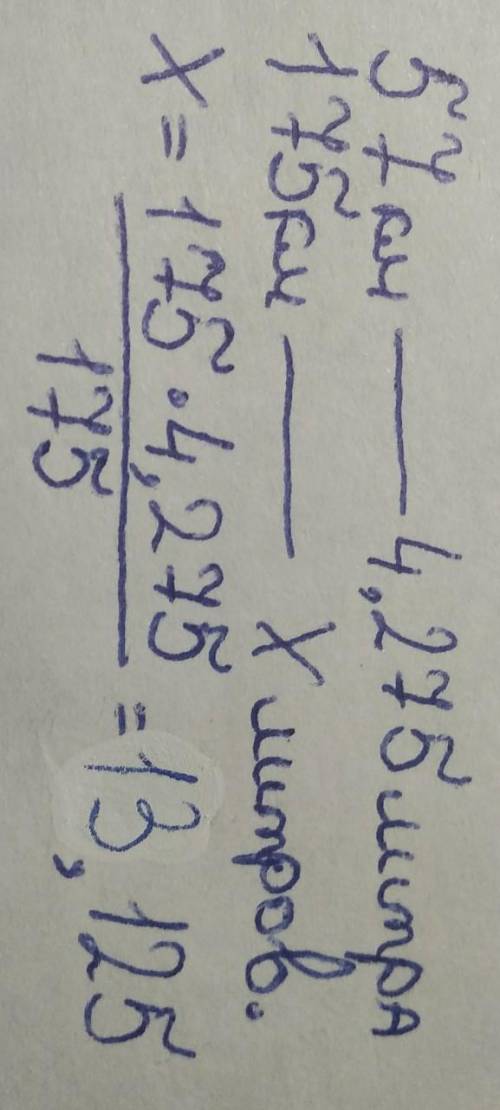 57 км — 4,275 литра
175 км — X литров.
X = 175 · 4,275 = 13,125
175